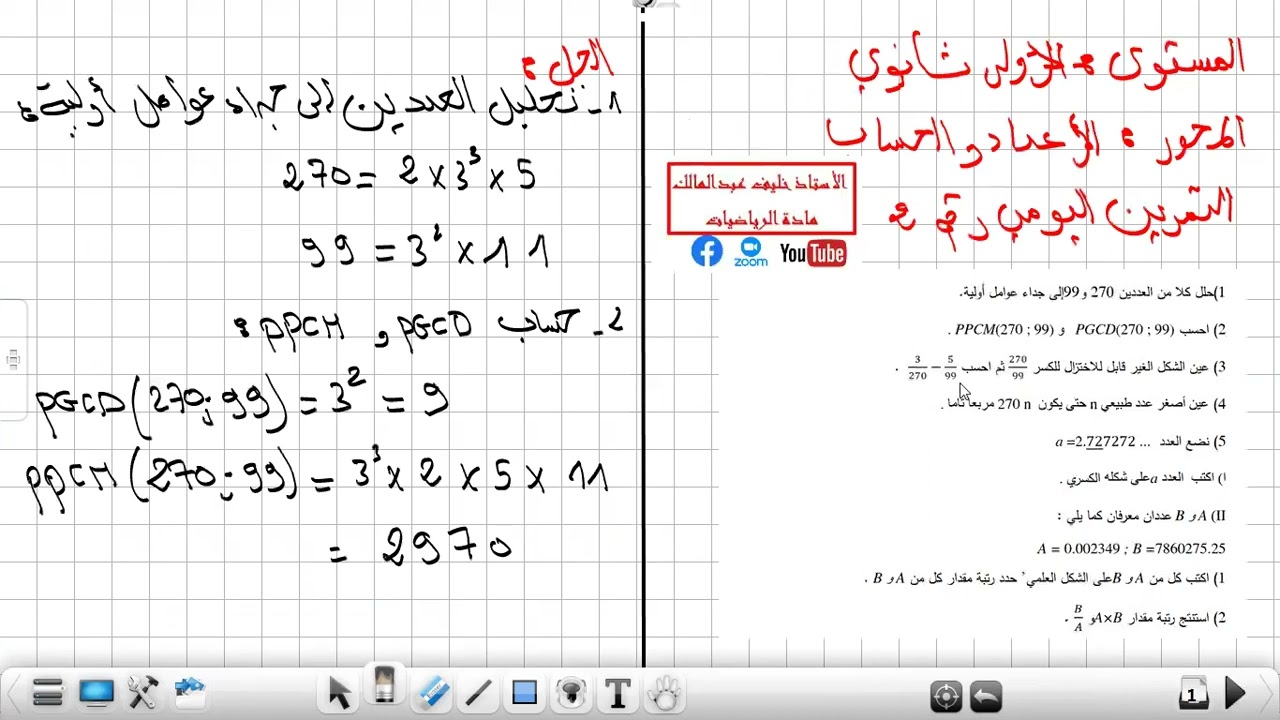 المستوى : الأولى ثانوي
المحور : الأعداد و الحساب
التمرين اليومي رقم 2
الأستاذ خليف عبد المالك
مادة الرياضيات
zoom YouTube
1)حلل كلا من العددين 270 و 99إلى جداء عوامل أولية.
2) احسب PGCD(270 ; 99) و PPCM(270 ; 99) .
3) عين الشكل الغير قابل للاختزال للكسر 270/99 ثم احسب 5/99 − 3/270 .
4) عين أصغر عدد طبيعي n حتى يكون 270 n مربعا تاما .
5) نضع العدد ... a =2.727272
ا) اكتب العدد a على شكله الكسري .
II) A و B عددان معرفان كما يلي :
A = 0.002349 ; B =7860275.25
1) اكتب كل من A و B على الشكل العلمي ' حدد رتبة مقدار كل من A و B .
2) استنتج رتبة مقدار A×B و B/A .
الحل :
1- تحليل العددين إلى جداء عوامل أولية :
270 = 2 × 3³ × 5
99 = 3² × 11
2- حساب PGCD و PPCM :
PGCD(270 ; 99) = 3² = 9
PPCM(270 ; 99) = 3³ × 2 × 5 × 11
= 2970
1